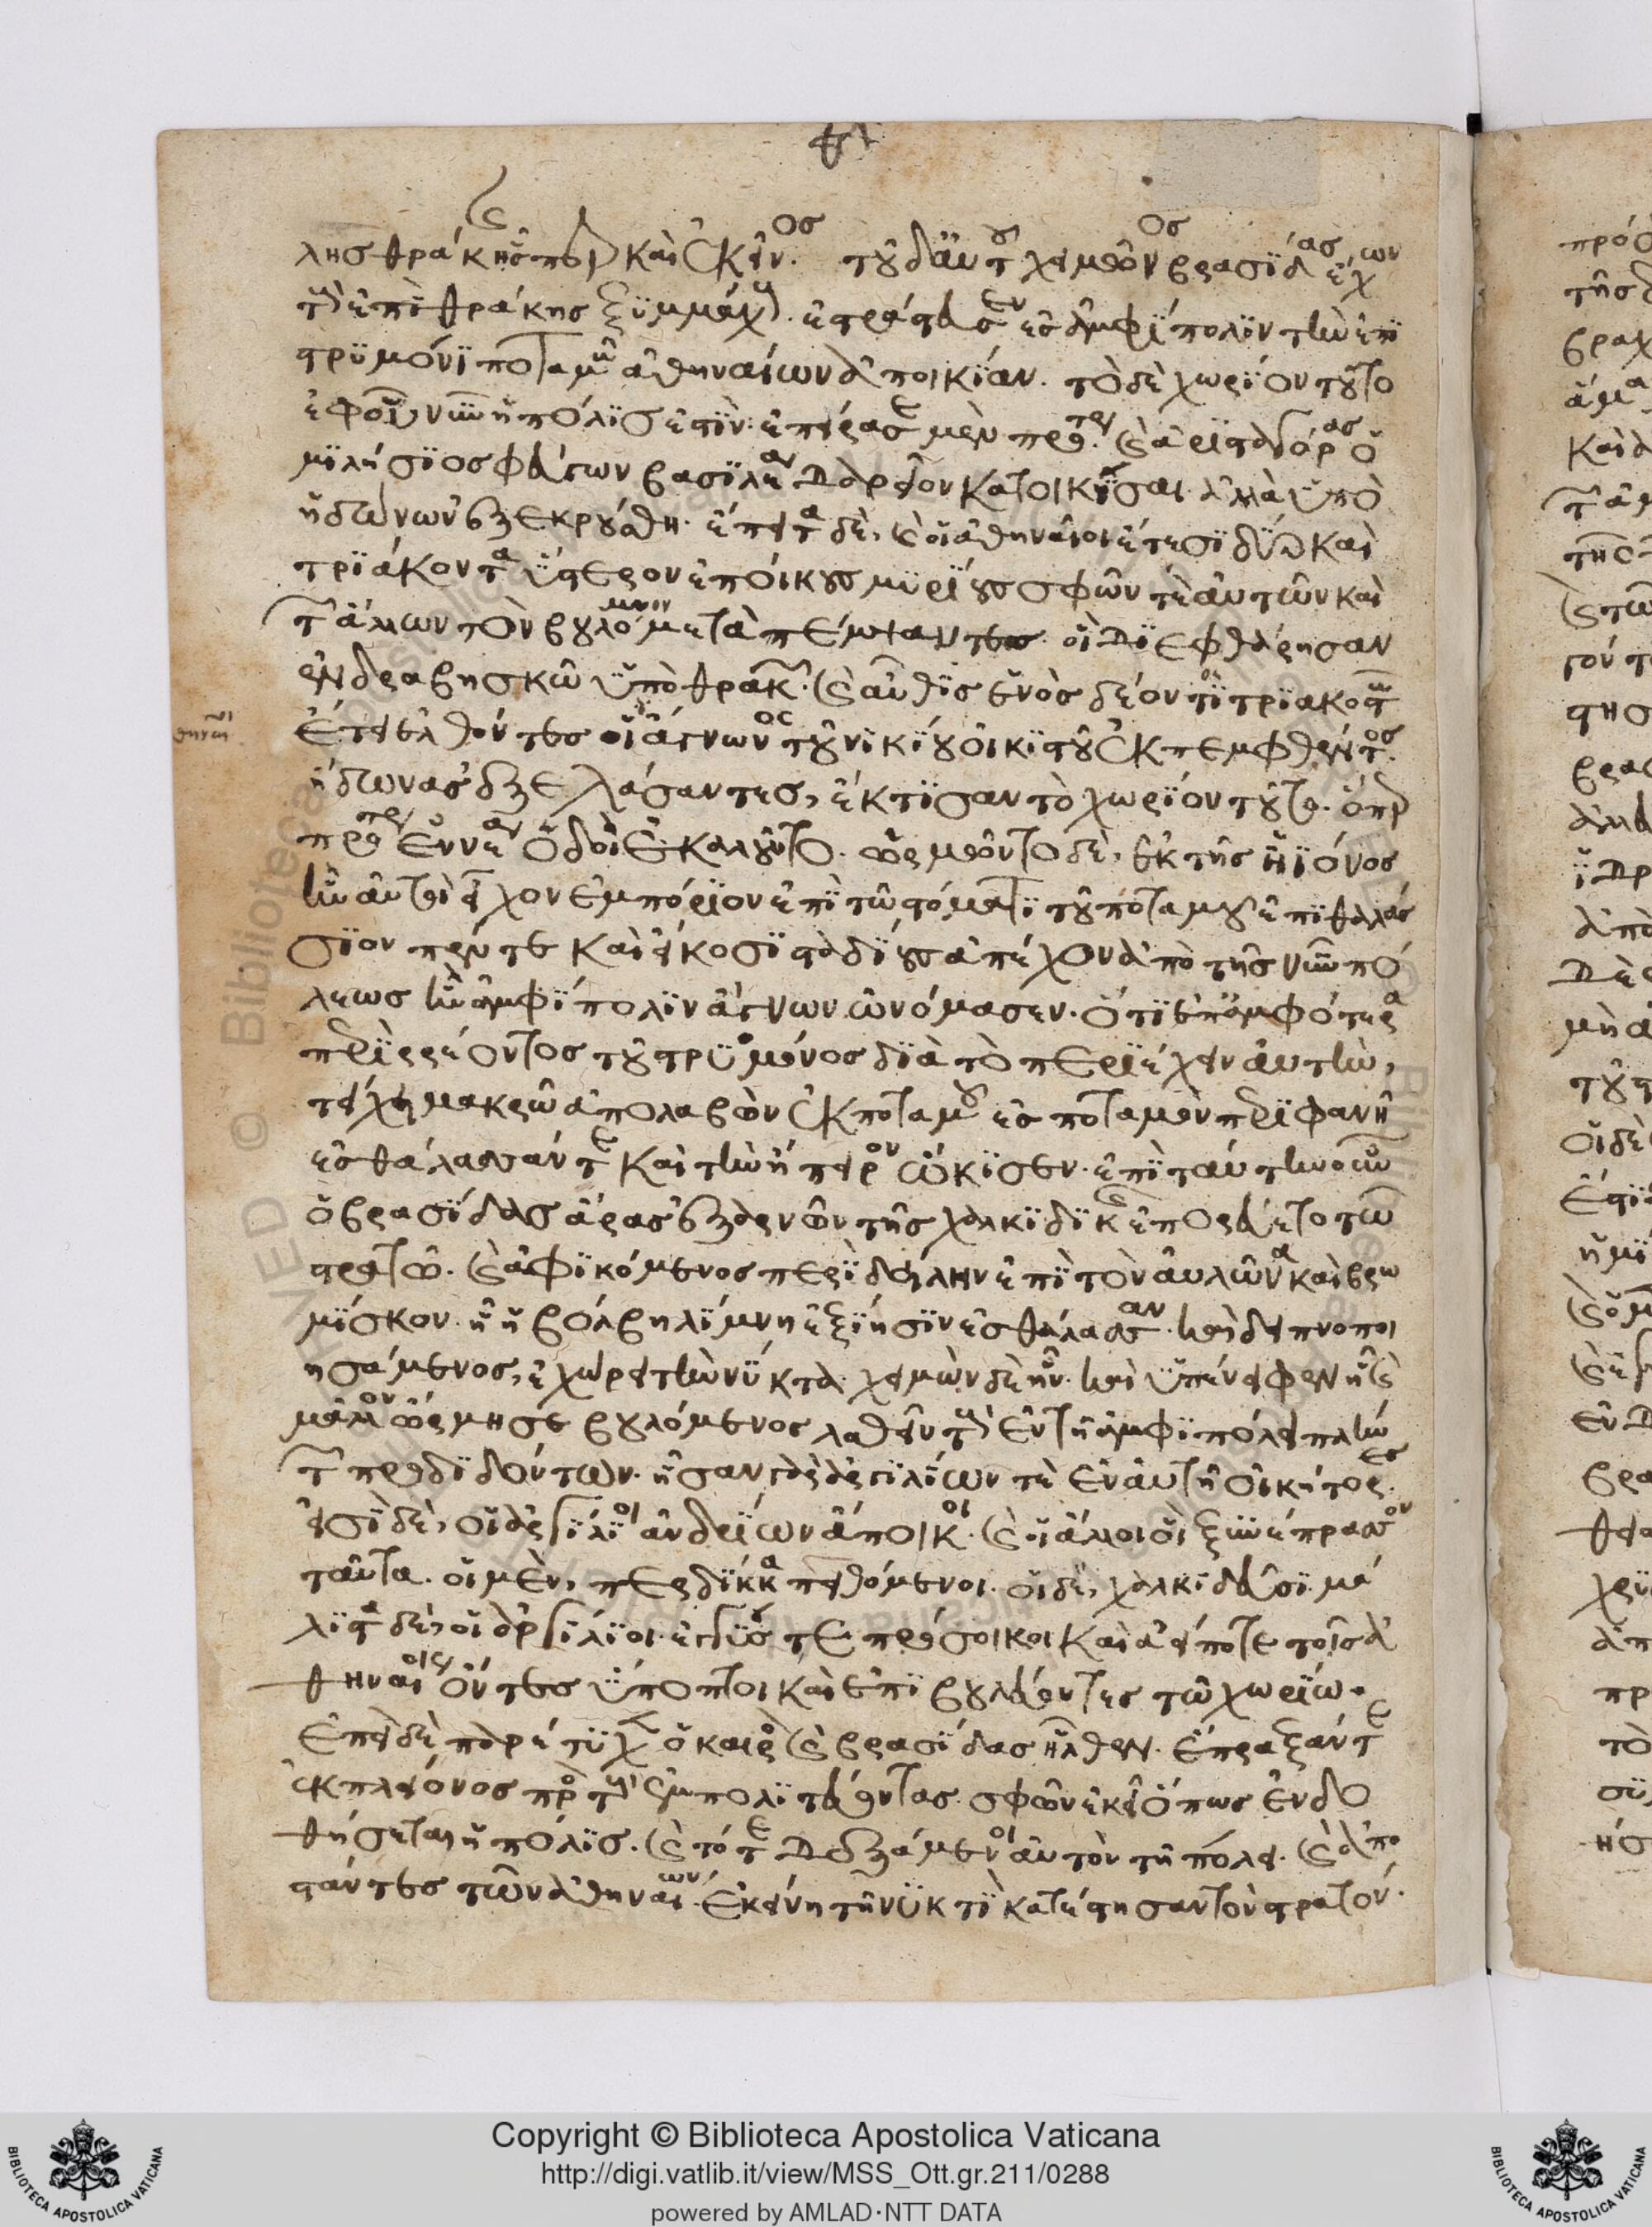 λης θράκης ἧς περ καὶ ἐκεῖνος. τοῦ δ' αὐτοῦ χειμῶνος βρασίδας ἔχων
τοὺς ἐπὶ θράκης ξυμμάχους. ἐστράτευσεν ἐς ἀμφίπολιν τὴν ἐπὶ
στρυμόνι ποταμῶ ἀθηναίων ἀποικίαν. τὸ δὲ χωρίον τοῦτο
ἐφ' οὗ νῦν ἡ πόλις ἐστὶν. ἐπείρασε μὲν πρότερον καὶ ἀρισταγόρας ὁ
μιλήσιος φεύγων βασιλέα δαρεῖον κατοικίσαι. ἀλλὰ ὑπὸ
ἠδώνων ἐξεκρούσθη. ἔπειτα δὲ, καὶ οἱ ἀθηναῖοι ἔτεσι δύο καὶ
τριάκοντα ὕστερον ἐποίκους μυρίους σφῶν τὲ αὐτῶν καὶ
τῶν ἄλλων τὸν βουλόμενον πέμψαντες. οἳ διεφθάρησαν
ἐν δραβησκῶ ὑπὸ θρακῶν. καὶ αὖθις ἑνὸς δέοντι τριακοστῶ
ἔτει ἐλθόντες οἱ ἀθηναῖοι ἅγνωνος τοῦ νικίου οἰκιστοῦ ἐκπεμφθέντος.
ἠδῶνας ἐξελάσαντες, ἔκτισαν τὸ χωρίον τοῦτο. ὅπερ
πρότερον ἐννέα ὁδοὶ ἐκαλοῦντο. ὡρμῶντο δὲ, ἐκ τῆς ἠϊόνος
ἣν αὐτοὶ εἶχον ἐμπόριον ἐπὶ τῶ στόματι τοῦ ποταμοῦ ἐπιθαλάσ
σιον πέντε καὶ εἴκοσι σταδίους ἀπέχον ἀπὸ τῆς νῦν πό
λεως ἣν ἀμφίπολιν ἅγνων ὠνόμασεν. ὅτι ἐπ' ἀμφότερα
περιρρέοντος τοῦ στρυμόνος διὰ τὸ περιέχειν αὐτὴν,
τείχει μακρῶ ἀπολαβὼν ἐκ ποταμοῦ ἐς ποταμὸν περιφανῆ
ἐς θάλασσάν τε καὶ τὴν ἤπειρον ὤκισεν. ἐπὶ ταύτην οὖν
ὁ βρασίδας ἄρας ἐξ ἀρνῶν τῆς χαλκιδικῆς ἐπορεύετο τῶ
στρατῶ. καὶ ἀφικόμενος περὶ δείλην ἐπὶ τὸν αὐλῶνα καὶ βρω
μίσκον. ἧ ἡ βόλβη λίμνη ἐξίησιν ἐς θάλασσαν. καὶ δειπνοποι
ησάμενος, ἐχώρει τὴν νύκτα. χειμὼν δὲ ἦν. καὶ ὑπένειφεν ἧ καὶ
μᾶλλον ὥρμησε βουλόμενος λαθεῖν τοὺς ἐν τῆ ἀμφιπόλει πλὴν
τῶν προδιδόντων. ἦσαν γὰρ ἀργιλίων τὲ ἐν αὐτῆ οἰκήτορες.
εἰσὶ δὲ, οἱ ἀργίλιοι ἀνδρίων ἄποικοι. καὶ οἱ ἄλλοι οἳ ξυνέπρασσον
ταῦτα. οἱ μὲν, περδίκκα πειθόμενοι. οἱ δὲ, χαλκιδεῦσι. μά
λιστα δὲ, οἱ ἀργίλιοι. ἐγγύς τε πρόσοικοι καὶ ἀεί ποτε τοῖς ἀ
θηναίοις ὄντες ὕποπτοι καὶ ἐπιβουλεύοντες τῶ χωρίω.
ἐπειδὴ παρέτυχεν ὁ καιρὸς καὶ βρασίδας ἦλθεν. ἔπραξάν τε
ἐκ πλείονος πρὸς τοὺς ἐμπολιτεύοντας σφῶν ἐκεῖ ὅπως ἐνδο
θήσεται ἡ πόλις. καὶ τότε δεξάμενοι αὐτὸν τῆ πόλει. καὶ ἀπο
στάντες τῶν ἀθηναίων. ἐκείνη τῆ νυκτὶ κατέστησαν τὸν στρατόν.
Copyright © Biblioteca Apostolica Vaticana
http://digi.vatlib.it/view/MSS_Ott.gr.211/0288
powered by AMLAD·NTT DATA